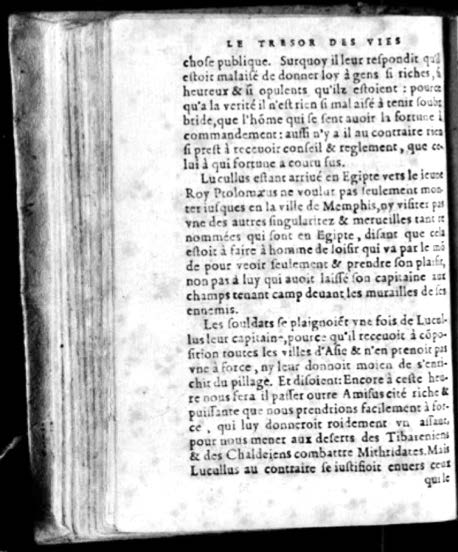 LE TRESOR DES VIES
chose publique. Surquoy il leur respondit qu'il
estoit malaisé de donner loy à gens si riches, si
heureux & si opulents qu'ilz estoient : pource
qu'à la verité il n'est rien si mal aisé à tenir soubz
bride, que l'hōme qui se sent auoir la fortune à
commandement: aussi n'y a il au contraire rien
si prest à receuoir conseil & reglement, que ce-
lui à qui fortune a couru sus.
Lucullus estant arriué en Egipte vers le ieune
Roy Ptolomæus ne voulut pas seulement mon-
ter iusques en la ville de Memphis, ny visiter pas
vne des autres singularitez & merueilles tant re
nommées qui sont en Egipte, disant que cela
estoit à faire à homme de loisir qui va par le mō
de pour veoir seulement & prendre son plaisir,
non pas à luy qui auoit laissé son capitaine aux
champs tenant camp deuant les murailles de ses
ennemis.
Les souldats se plaignoiēt vne fois de Lucul-
lus leur capitaine, pource qu'il receuoit à cōpo-
sition toutes les villes d'Asie & n'en prenoit pas
vne à force, ny leur donnoit moien de s'enri-
chir du pillage. Et disoient: Encore à ceste heu-
re nous fera il passer outre Amisus cité riche &
puissante que nous prendrions facilement à for-
ce, qui luy donneroit roidement vn assaut,
pour nous mener aux deserts des Tibareniens
& des Chaldeiens combattre Mithridates. Mais
Lucullus au contraire se iustifioit enuers ceux
qui le